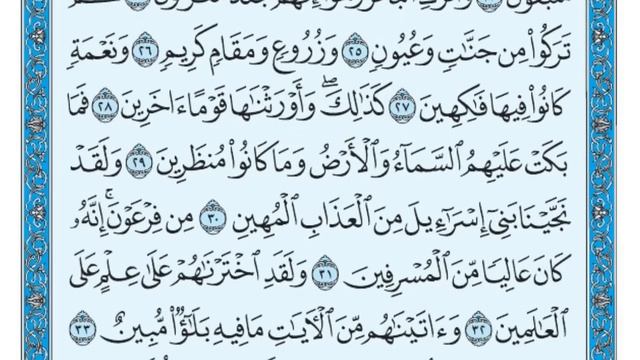 تَرَكُوا۟ مِن جَنَّٰتٍ وَعُيُونٍ ٢٥ وَزُرُوعٍ وَمَقَامٍ كَرِيمٍ ٢٦ وَنَعْمَةٍ
كَانُوا۟ فِيهَا فَٰكِهِينَ ٢٧ كَذَٰلِكَۖ وَأَوْرَثْنَٰهَا قَوْمًا ءَاخَرِينَ ٢٨ فَمَا
بَكَتْ عَلَيْهِمُ السَّمَآءُ وَالْأَرْضُ وَمَا كَانُوا۟ مُنظَرِينَ ٢٩ وَلَقَدْ
نَجَّيْنَا بَنِىٓ إِسْرَٰٓءِيلَ مِنَ الْعَذَابِ الْمُهِينِ ٣٠ مِن فِرْعَوْنَۚ إِنَّهُۥ
كَانَ عَالِيًا مِّنَ الْمُسْرِفِينَ ٣١ وَلَقَدِ اخْتَرْنَٰهُمْ عَلَىٰ عِلْمٍ عَلَى
الْعَٰلَمِينَ ٣٢ وَءَاتَيْنَٰهُم مِّنَ الْءَايَٰتِ مَا فِيهِ بَلَٰٓؤٌا۟ مُّبِينٌ ٣٣